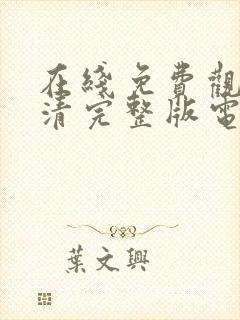 在綫免費觀
清完整版電
葉文興